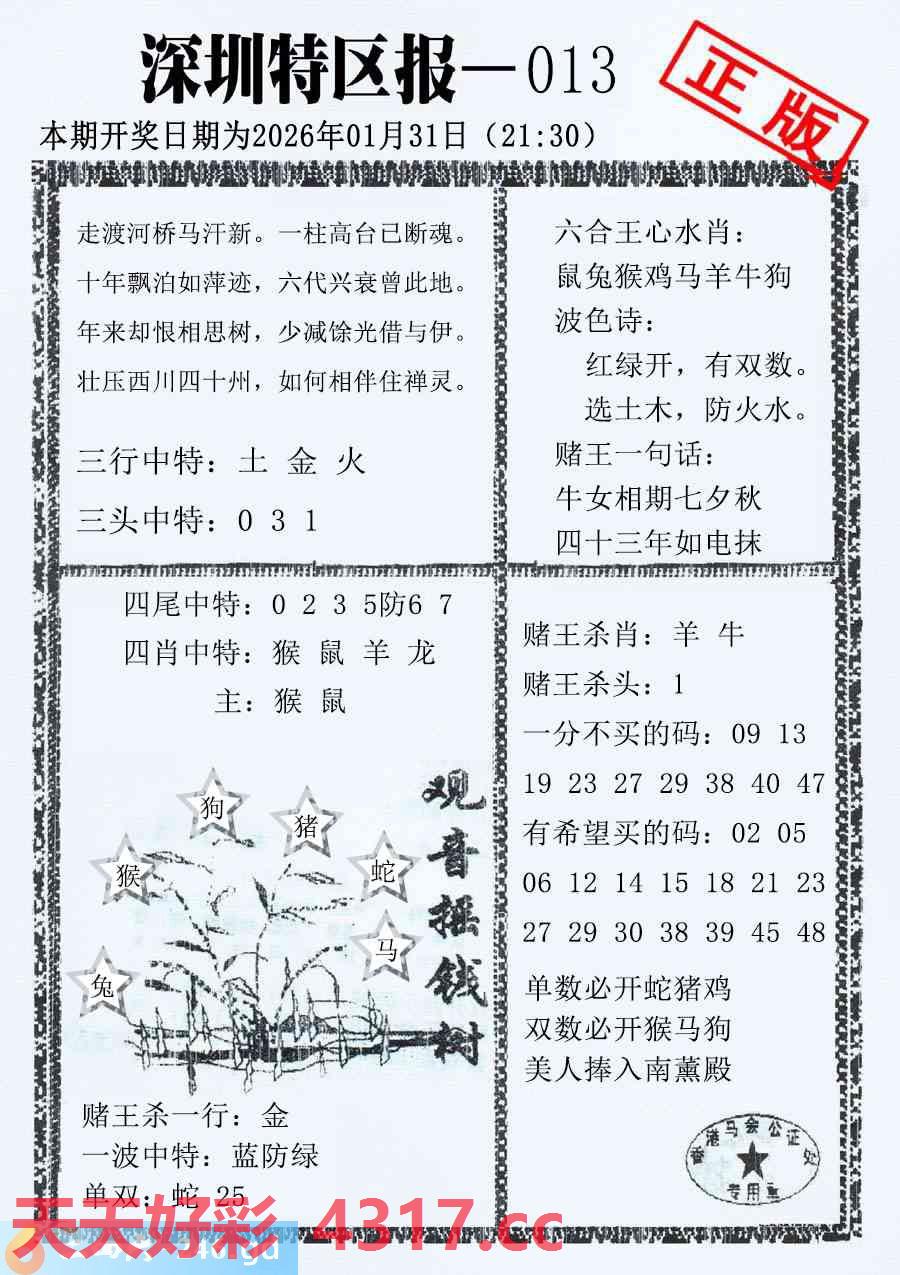 深圳特区报—013
正版
本期开奖日期为2026年01月31日（21:30）
走渡河桥马汗新。一柱高台已断魂。
十年飘泊如萍迹，六代兴衰曾此地。
年来却恨相思树，少减馀光借与伊。
壮压西川四十州，如何相伴住禅灵。
三行中特：土 金 火
三头中特：0 3 1
六合王心水肖：
鼠兔猴鸡马羊牛狗
波色诗：
红绿开，有双数。
选土木，防火水。
赌王一句话：
牛女相期七夕秋
四十三年如电抹
四尾中特：0 2 3 5防6 7
四肖中特：猴 鼠 羊 龙
主：猴 鼠
狗
猪
猴
蛇
马
兔
观音摇钱树
赌王杀一行：金
一波中特：蓝防绿
单双：蛇 25
赌王杀肖：羊 牛
赌王杀头：1
一分不买的码：09 13
19 23 27 29 38 40 47
有希望买的码：02 05
06 12 14 15 18 21 23
27 29 30 38 39 45 48
单数必开蛇猪鸡
双数必开猴马狗
美人捧入南薰殿
香港马会公证处
专用章
天天好彩 4317.cc